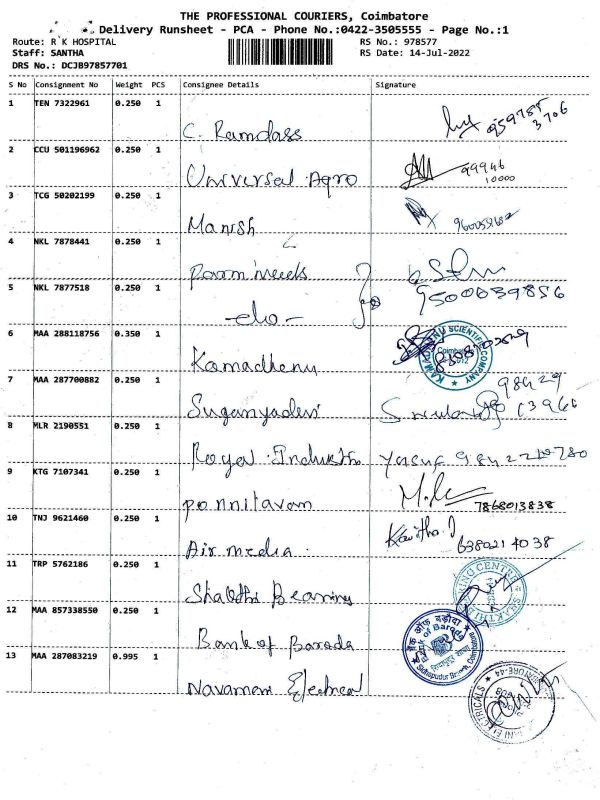 THE PROFESSIONAL COURIERS, Coimbatore
Delivery Runsheet - PCA - Phone No.:0422-3505555 - Page No.:1
Route: R K HOSPITAL
Staff: SANTHA
DRS No.: DCJB97857701
RS No.: 978577
RS Date: 14-Jul-2022
S No Consignment No Weight PCS Consignee Details Signature
1 TEN 7322961 0.250 1
C. Ramdass
2 CCU 501196962 0.250 1
Universal Agro 99946
10000
3 TCG 50202199 0.250 1
Manish
4 NKL 7878441 0.250 1
5 NKL 7877518 0.250 1
9500039856
-do-
6 MAA 288118756 0.350 1
Kamadhenu
KAMADHENU SCIENTIFIC COMPANY
7 MAA 287700882 0.250 1
Suganyadevi 98429 13966
8 MLR 2190551 0.250 1
Royal Industries
9 KTG 7107341 0.250 1
ponnitavam 7868013838
10 TNJ 9621460 0.250 1
Air media. Kavitha. J 6380214038
11 TRP 5762186 0.250 1
Shakthi Bearing
12 MAA 857338550 0.250 1
Bank of Baroda
बैंक ऑफ़ बड़ौदा
Bank of Baroda
Sidhapudur Branch, Coimbatore
13 MAA 287083219 0.995 1
Navamani Electrical